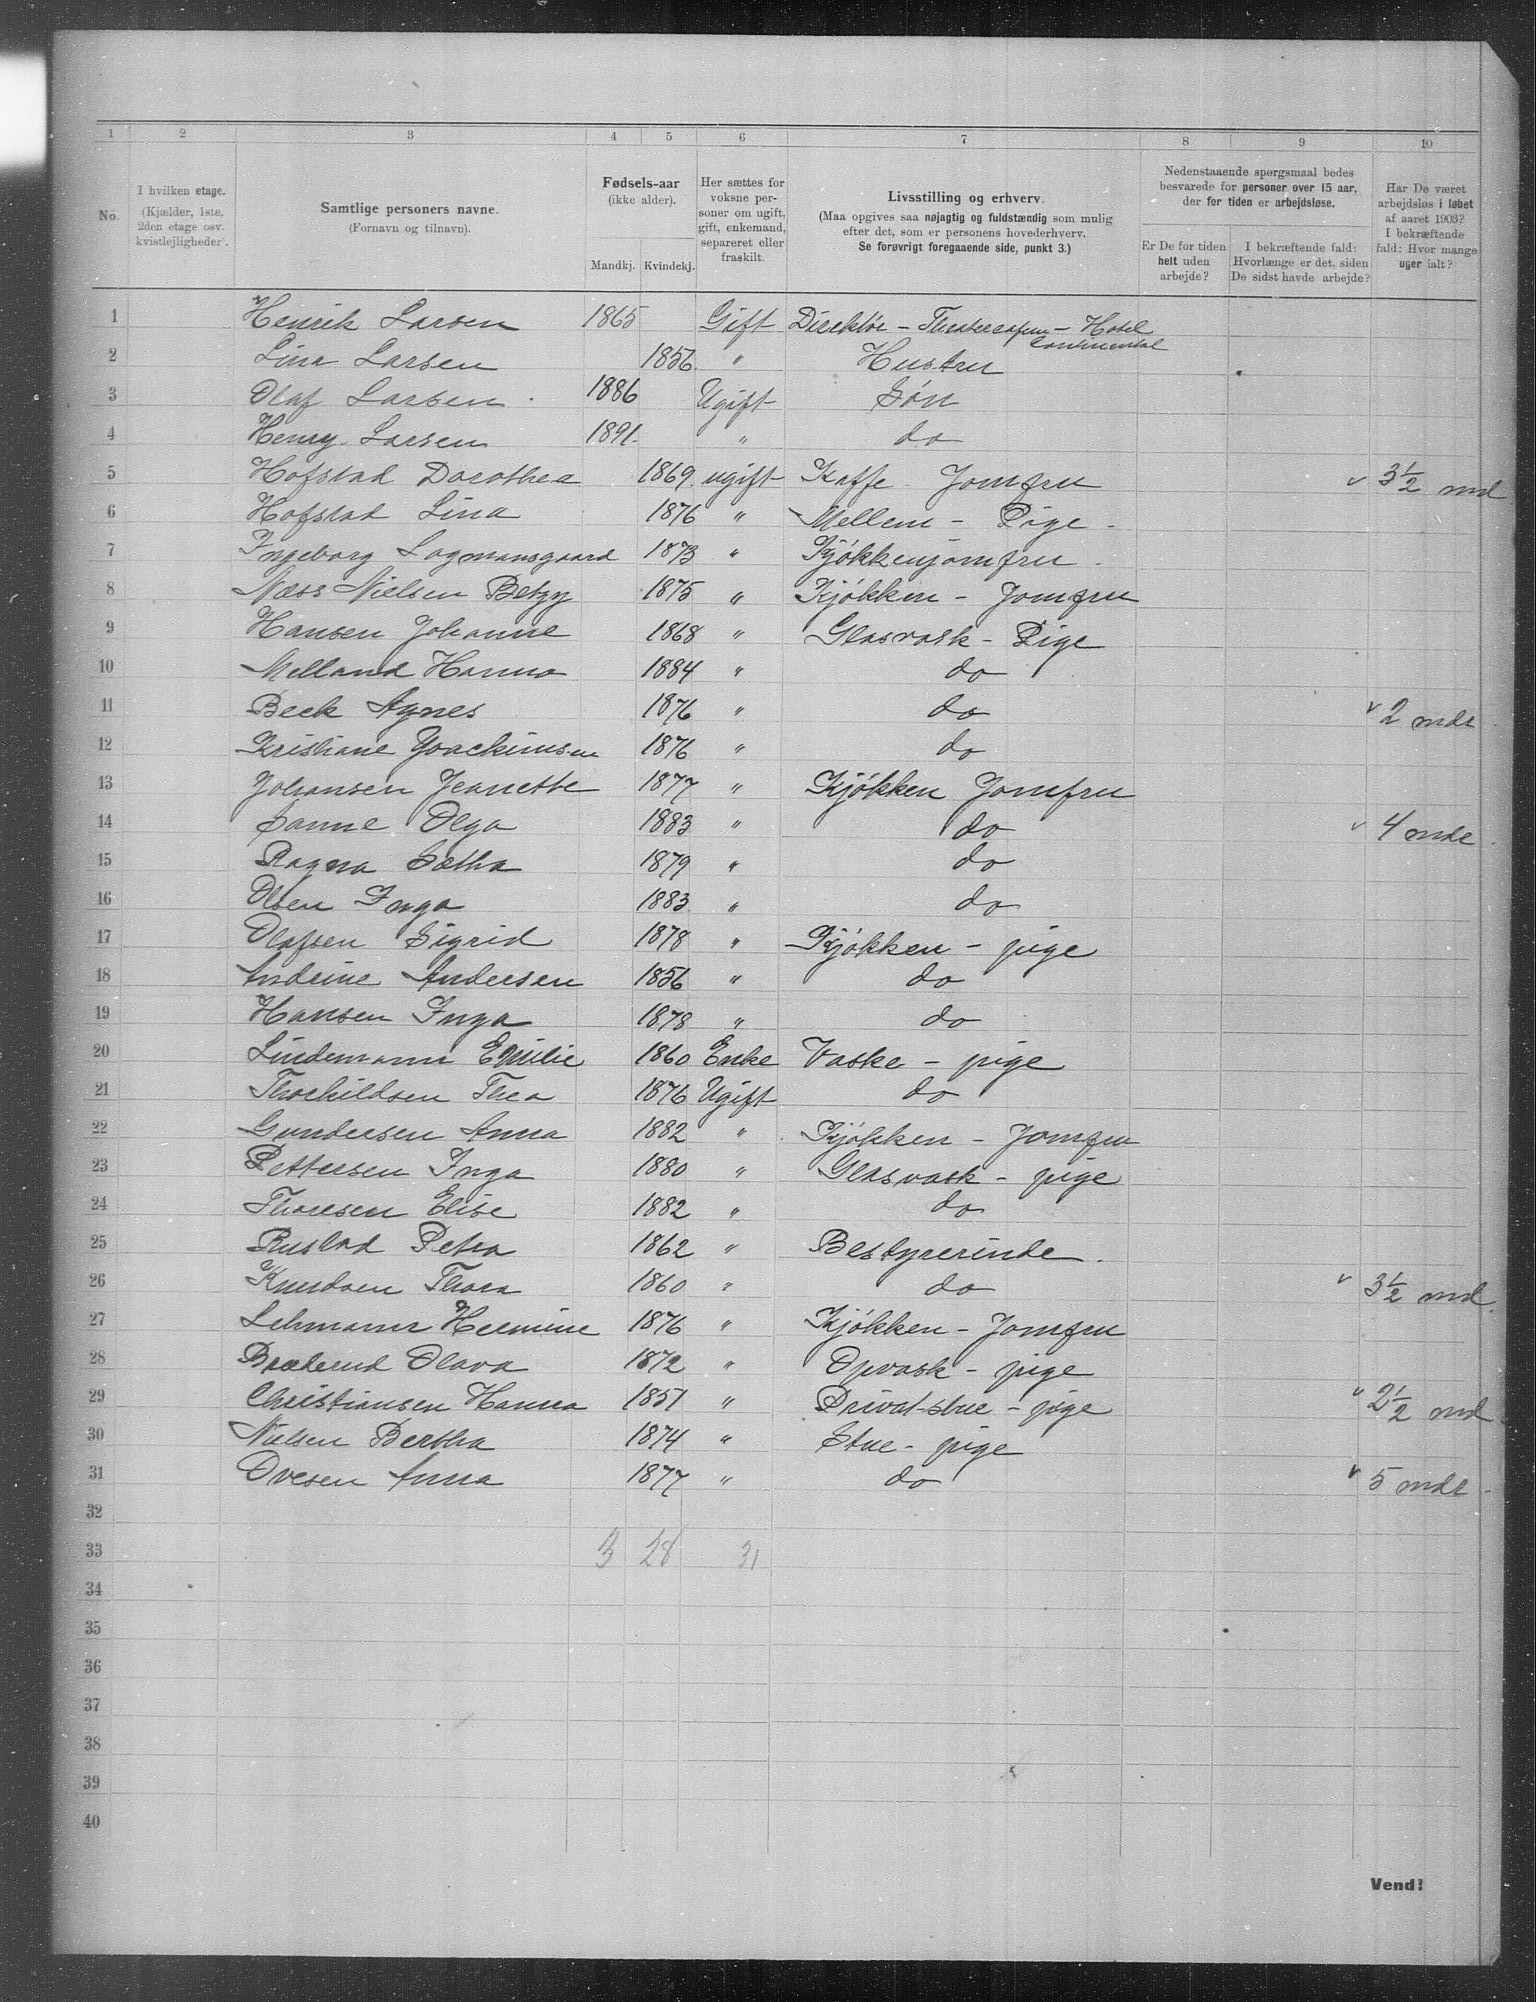 1 2 3 4 5 6 7 8 9 10
No.
I hvilken etage.
(Kjælder, 1ste,
2den etage osv.
kvistleiligheder).
Samtlige personers navne.
(Fornavn og tilnavn).
Fødsels-aar
(ikke alder).
Mandkj. Kvindekj.
Her sættes for
voksne per-
soner om ugift,
gift, enkemand,
separeret eller
fraskilt.
Livsstilling og erhverv.
(Maa opgives saa nøjagtig og fuldstændig som mulig
efter det, som er personens hovederhverv.
Se forøvrigt foregaaende side, punkt 3.)
Nedenstaaende spørgsmaal bedes
besvarede for personer over 15 aar,
der for tiden er arbejdsløse.
Er De for tiden
helt uden
arbejde?
I bekræftende fald:
Hvorlænge er det, siden
De sidst havde arbejde?
Har De været
arbejdsløs i løbet
af aaret 1903?
I bekræftende
fald: Hvor mange
uger ialt?
1 Henrik Larsen 1865 Gift Direktør - Theatercafeen - Hotel
Continental
2 Lina Larsen 1856 " Hustru
3 Olaf Larsen 1886 Ugift Søn
4 Henry Larsen 1891 " do
5 Hofstad Dorothea 1869 ugift Kaffe Jomfru v 3 1/2 md
6 Hofstad Lina 1876 " Mellem - Pige
7 Ingeborg Lagmansgaard 1873 " Kjøkkenjomfru
8 Næss Nielsen Betzy 1875 " Kjøkken - Jomfru
9 Hansen Johanne 1868 " Glasvask - Pige
10 Melland Hanna 1884 " do
11 Beck Agnes 1876 " do v 2 mdr
12 Kristiane Joachimsen 1876 " do
13 Johansen Jeanette 1877 " Kjøkken Jomfru
14 Sanne Olga 1883 " do v 4 mdr
15 Ragna Sætha 1879 " do
16 Olsen Inga 1883 " do
17 Olafsen Sigrid 1878 " Kjøkken - pige
18 Andrine Andersen 1856 " do
19 Hansen Inga 1878 " do
20 Lindemann Emilie 1860 Enke Vaske - pige
21 Thorkildsen Thea 1876 Ugift do
22 Gundersen Anna 1882 " Kjøkken - Jomfru
23 Pettersen Inga 1880 " Glasvask - pige
24 Thoresen Elise 1882 " do
25 Rustad Petra 1862 " Bestyrerinde
26 Knudsen Thora 1860 " do v 3 1/2 md
27 Lehmann Hermine 1876 " Kjøkken - Jomfru
28 Braterud Olava 1872 " Opvask - pige
29 Christiansen Hanna 1851 " Privat-stue - pige v 2 1/2 md
30 Nielsen Bertha 1874 " Stue - pige
31 Ovesen Anna 1877 " do v 5 mdr
32
33 3 28 31
34
35
36
37
38
39
40
Vend!